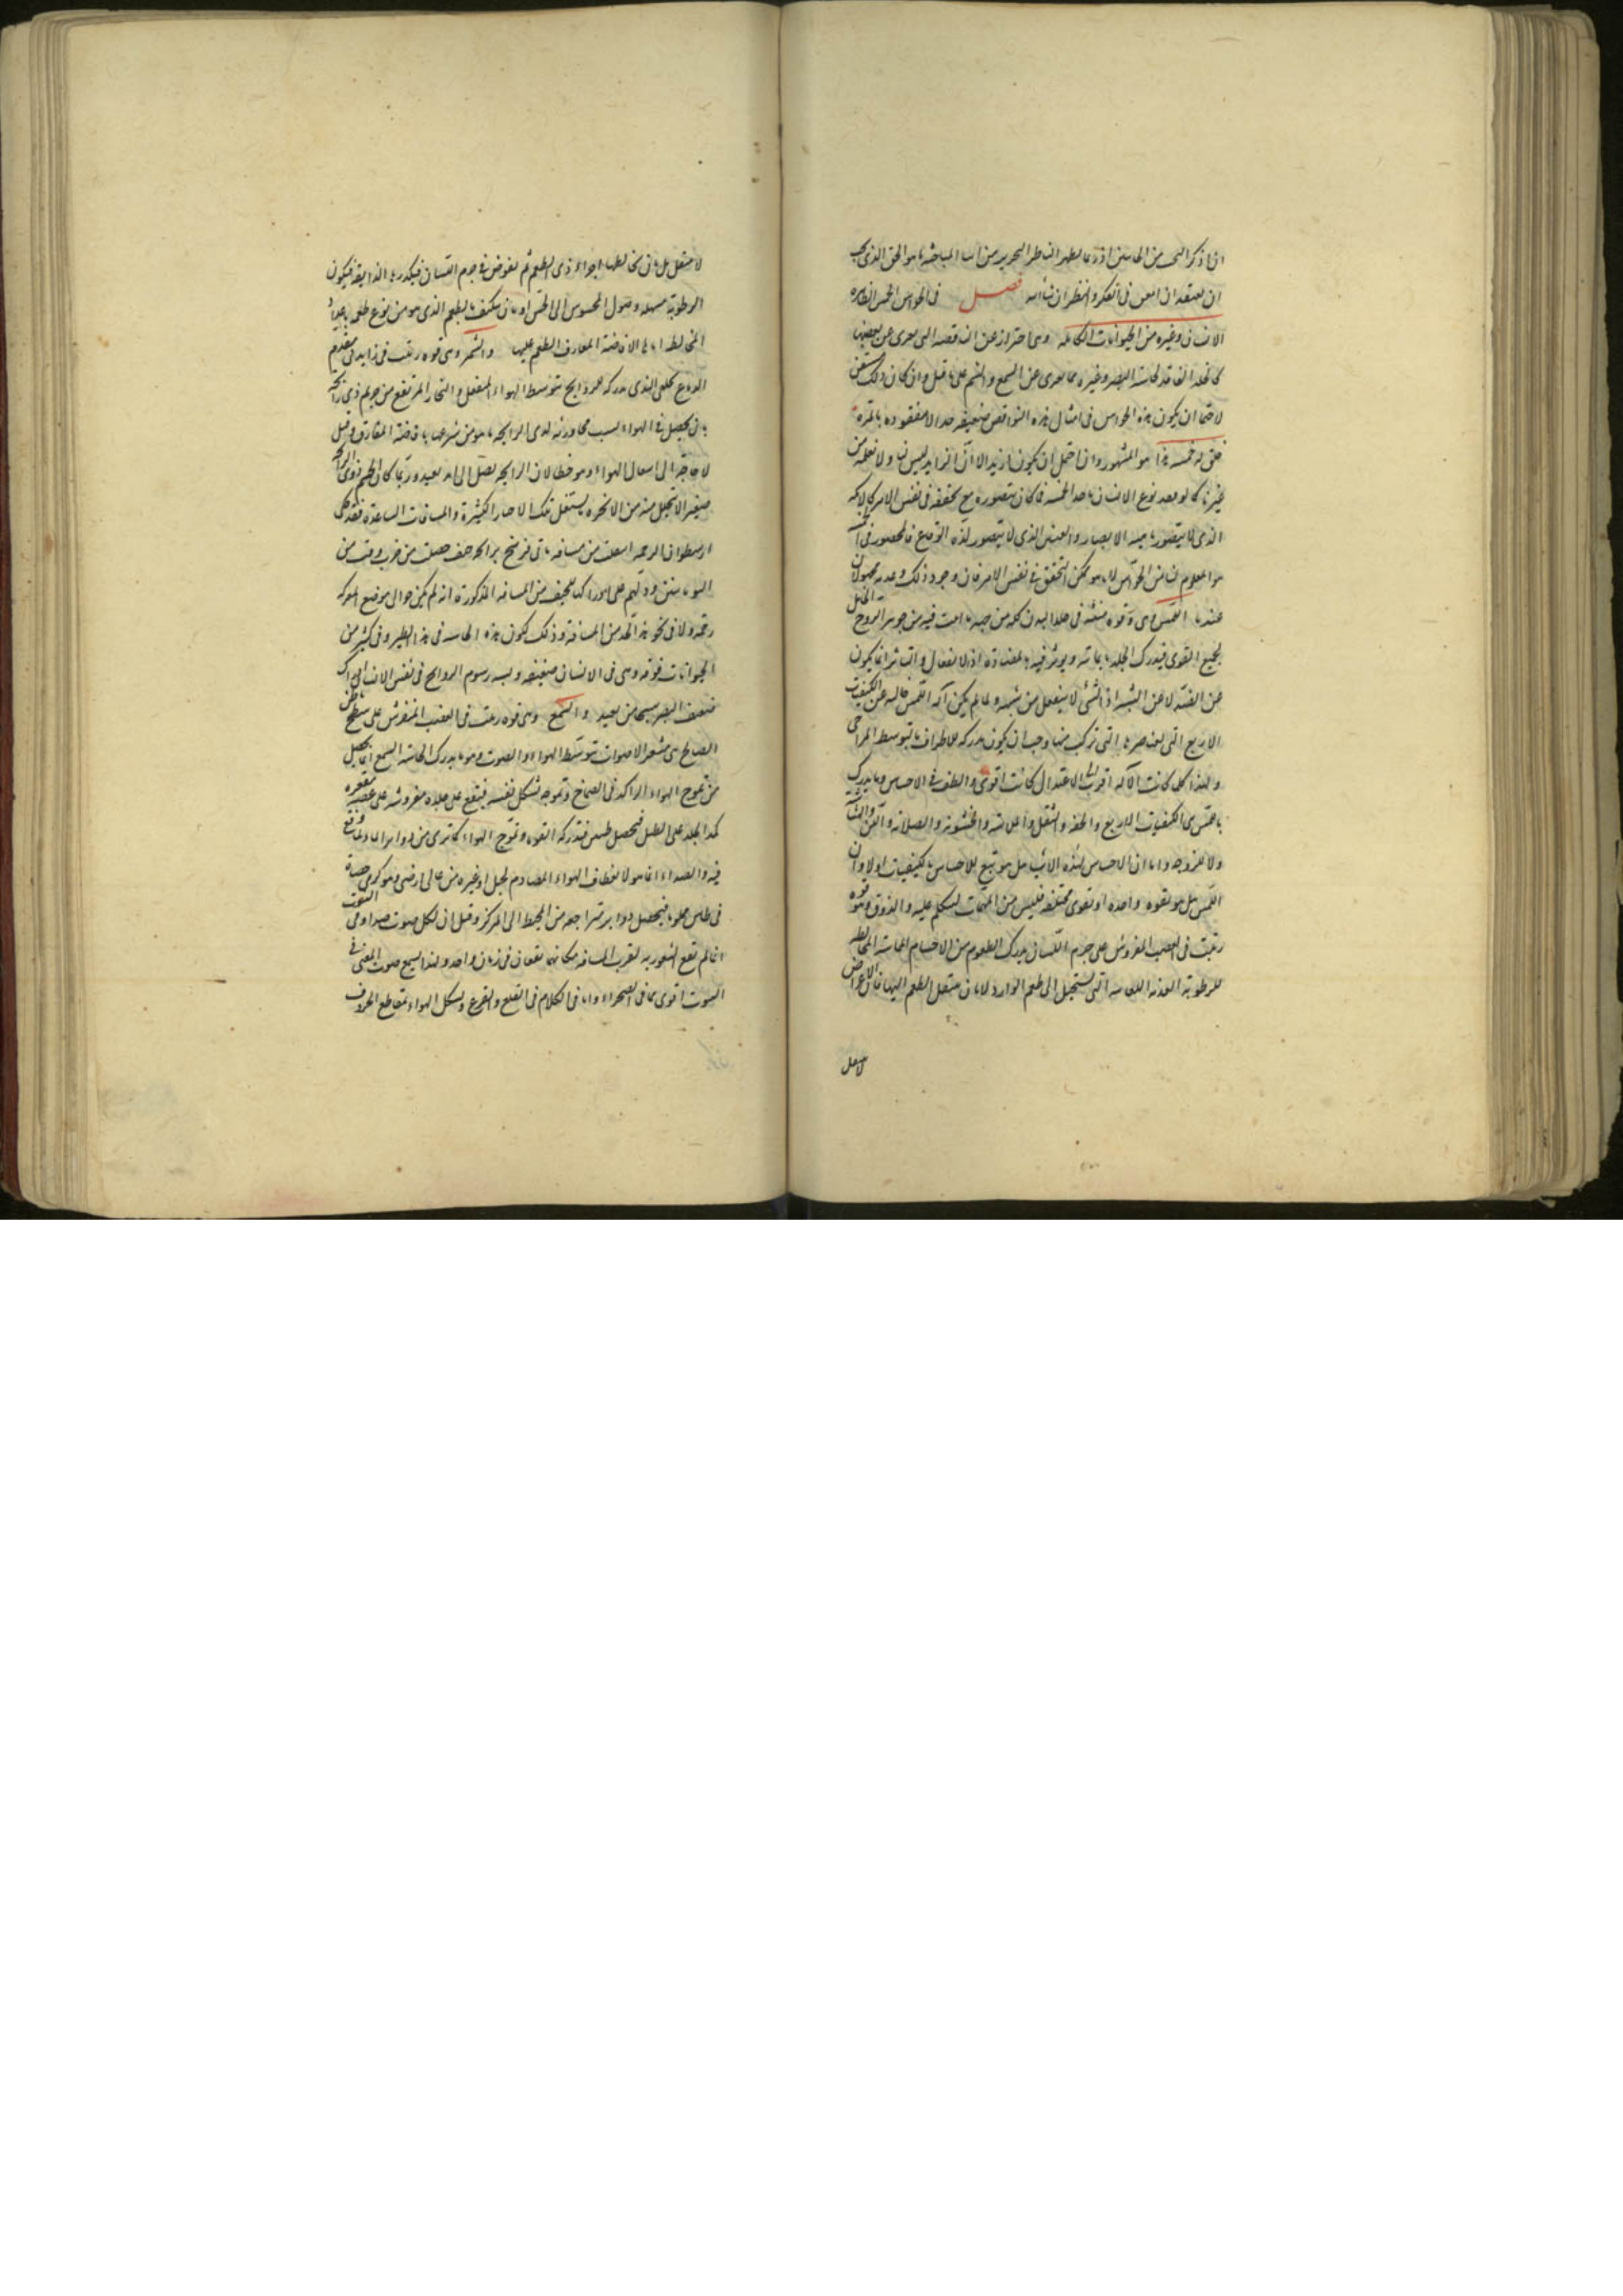 ان يعتقد ان امعن في الفكر والنظر ان شاء الله فصل في الحواس الخمس الظاهرة
الانسان وغيره من الحيوانات الكاملة وهي احتراز عن الناقصة التي تعرى عن بعضها
كالخلد الفاقد لحاسة البصر وغيره مما يعرى عن السمع والشم على ما قيل وان كان ذلك
لاحتمال ان يكون هذه الحواس في امثال هذه النواقص ضعيفة جدا لا مفقودة بالمرة
هذا هو المشهور وان احتمل ان يكون ازيد الا ان الزايد ليس لنا ولا نعلمه من
غيرنا كما لو فقد نوع الانسان احد الخمسة فما كان يتصوره مع تحققه في نفس الامر كالاكمه
الذي لا يتصور ماهية الابصار والعنين الذي لا يتصور لذة الوقاع فالمحصور في الخمسة
هو المعلوم لنا من الحواس لا ما هو ممكن التحقق في نفس الامر فان وجود ذلك وعدمه مجهولان
عندنا اللمس وهي قوة منبثة في جلد البدن كله من جهة ما انبث فيه من جوهر الروح الحامل
لجميع القوى فيدرك الجلد ما يماسه ويؤثر فيه بالمضادة اذ الانفعال والتأثر انما يكون
عن الضد لا عن الشبه اذ الشيء لا ينفعل من شبهه ولما لم يكن آلة اللمس خالية عن الكيفيات
الاربع التي لعناصرها التي تركب منها وجب ان يكون مدركة للاطراف بالتوسط المزاجي
ولهذا كلما كانت الآلة اقرب الى الاعتدال كانت اقوى والطف في الاحساس وما يدرك
باللمس هي الكيفيات الاربع والخفة والثقل والملاسة والخشونة والصلابة واللين والهشاشة
واللزوجة واما ان الاحساس لهذه الاشياء هل هو تبع للاحساس بالكيفيات اولا وان
اللمس هل هو بقوة واحدة او بقوى مختلفة فليس من المهمات لنتكلم عليه والذوق وهو قوة
رتبت في العصب المفروش على جرم اللسان يدرك الطعوم من الاجسام المماسة المخالطة
للرطوبة العذبة اللعابية التي تستحيل الى طعم الوارد لا بان ينتقل الطعم اليها فان الاعراض
لا تنتقل
لا تنتقل بل بان يخالطها اجزاء ذي الطعم ثم يغوص في جرم اللسان فيدركها الذايقة فيكون
الرطوبة مسهلة وصول المحسوس الى الحس او بان يتكيف بالطعم الذي هو من نوع طعم
المخالط لها لافاضة المفارق الطعم عليها والشم وهي قوة رتبت في زايدتي مقدم
الدماغ مدركة للروايح بتوسط الهواء المنفعل والبخار المرتفع من جرم ذي رائحة
بان يحصل في الهواء بسبب مجاورته لذي الرايحة ما هو من نوعها بافاضة المفارق وقيل
لا حاجة الى الهواء وهو خطأ لان الرايحة تصل الى امد بعيد وربما كان الجسم ذو الرايحة
صغيرا لا يتحلل منه من الابخرة ما يشغل تلك الاحياز الكثيرة والمسافات المتباعدة فقد حكى
ارسطو ان الرخمة انتقلت من مسافة مائتي فرسخ برائحة جيف حصلت من حرب وقعت بين
اليونانيين ودلهم على ادراكها للجيف من المسافة المذكورة انه لم يكن حوالي موضع المعركة
رخمة ولا في نحو هذا الحد من المسافة وذلك لكون هذه الحاسة في هذا الطير وفي كثير من
الحيوانات قوية وهي في الانسان ضعيفة ويشبه رسوم الروايح في نفس الانسان ادراك
ضعيف البصر شبحا من بعيد والسمع وهي قوة رتبت في العصب المنفرش على سطح باطن
الصماخ هي مشعر الاصوات بتوسط الهواء والصوت وهو ما يدرك بحاسة السمع انما يحصل
من تموج الهواء الراكد في الصماخ وتموجه بشكل نفسه فيقع على جلدة مفروشة على عصبة مقعرة
كمد الجلد على الطبل فيحصل طنين فتدركه القوة وتموج الهواء كما ترى من دواير الماء لما وقع
فيه والصداء انما هو لانعطاف الهواء المصادم لجبل او غيره من عالي ارض وهو كرمي حصاة
في طاس مملو ماء فيحصل دواير متراجعة من المحيط الى المركز وقيل ان لكل صوت صدا وفي البيوت
انما لم يقع الشعور به لقرب المسافة فكانهما يقعان في زمان واحد ولهذا يسمع صوت المغني في
البيوت اقوى مما في الصحراء واما في الكلام في القلع والقرع وتشكل الهواء بمقاطع الحروف